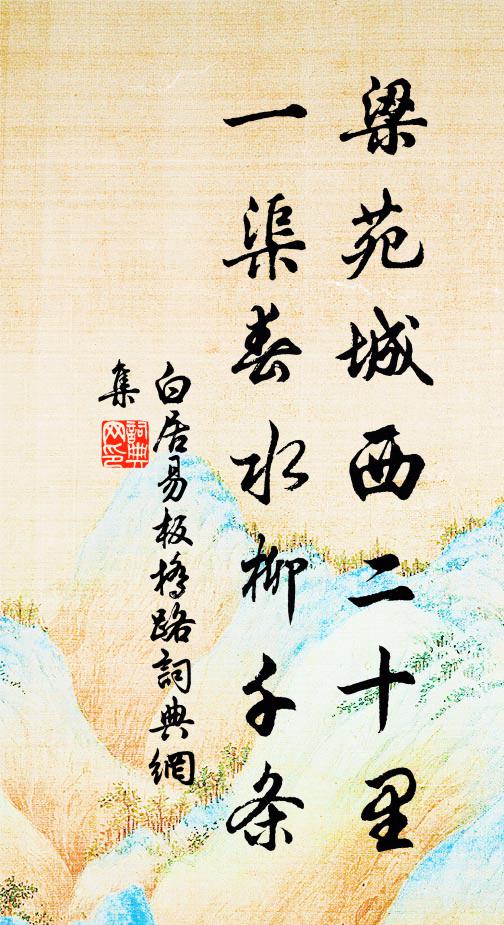 梁苑城西二十里
一渠春水柳千条
白居易板橋路詞典網
集
詞典网印